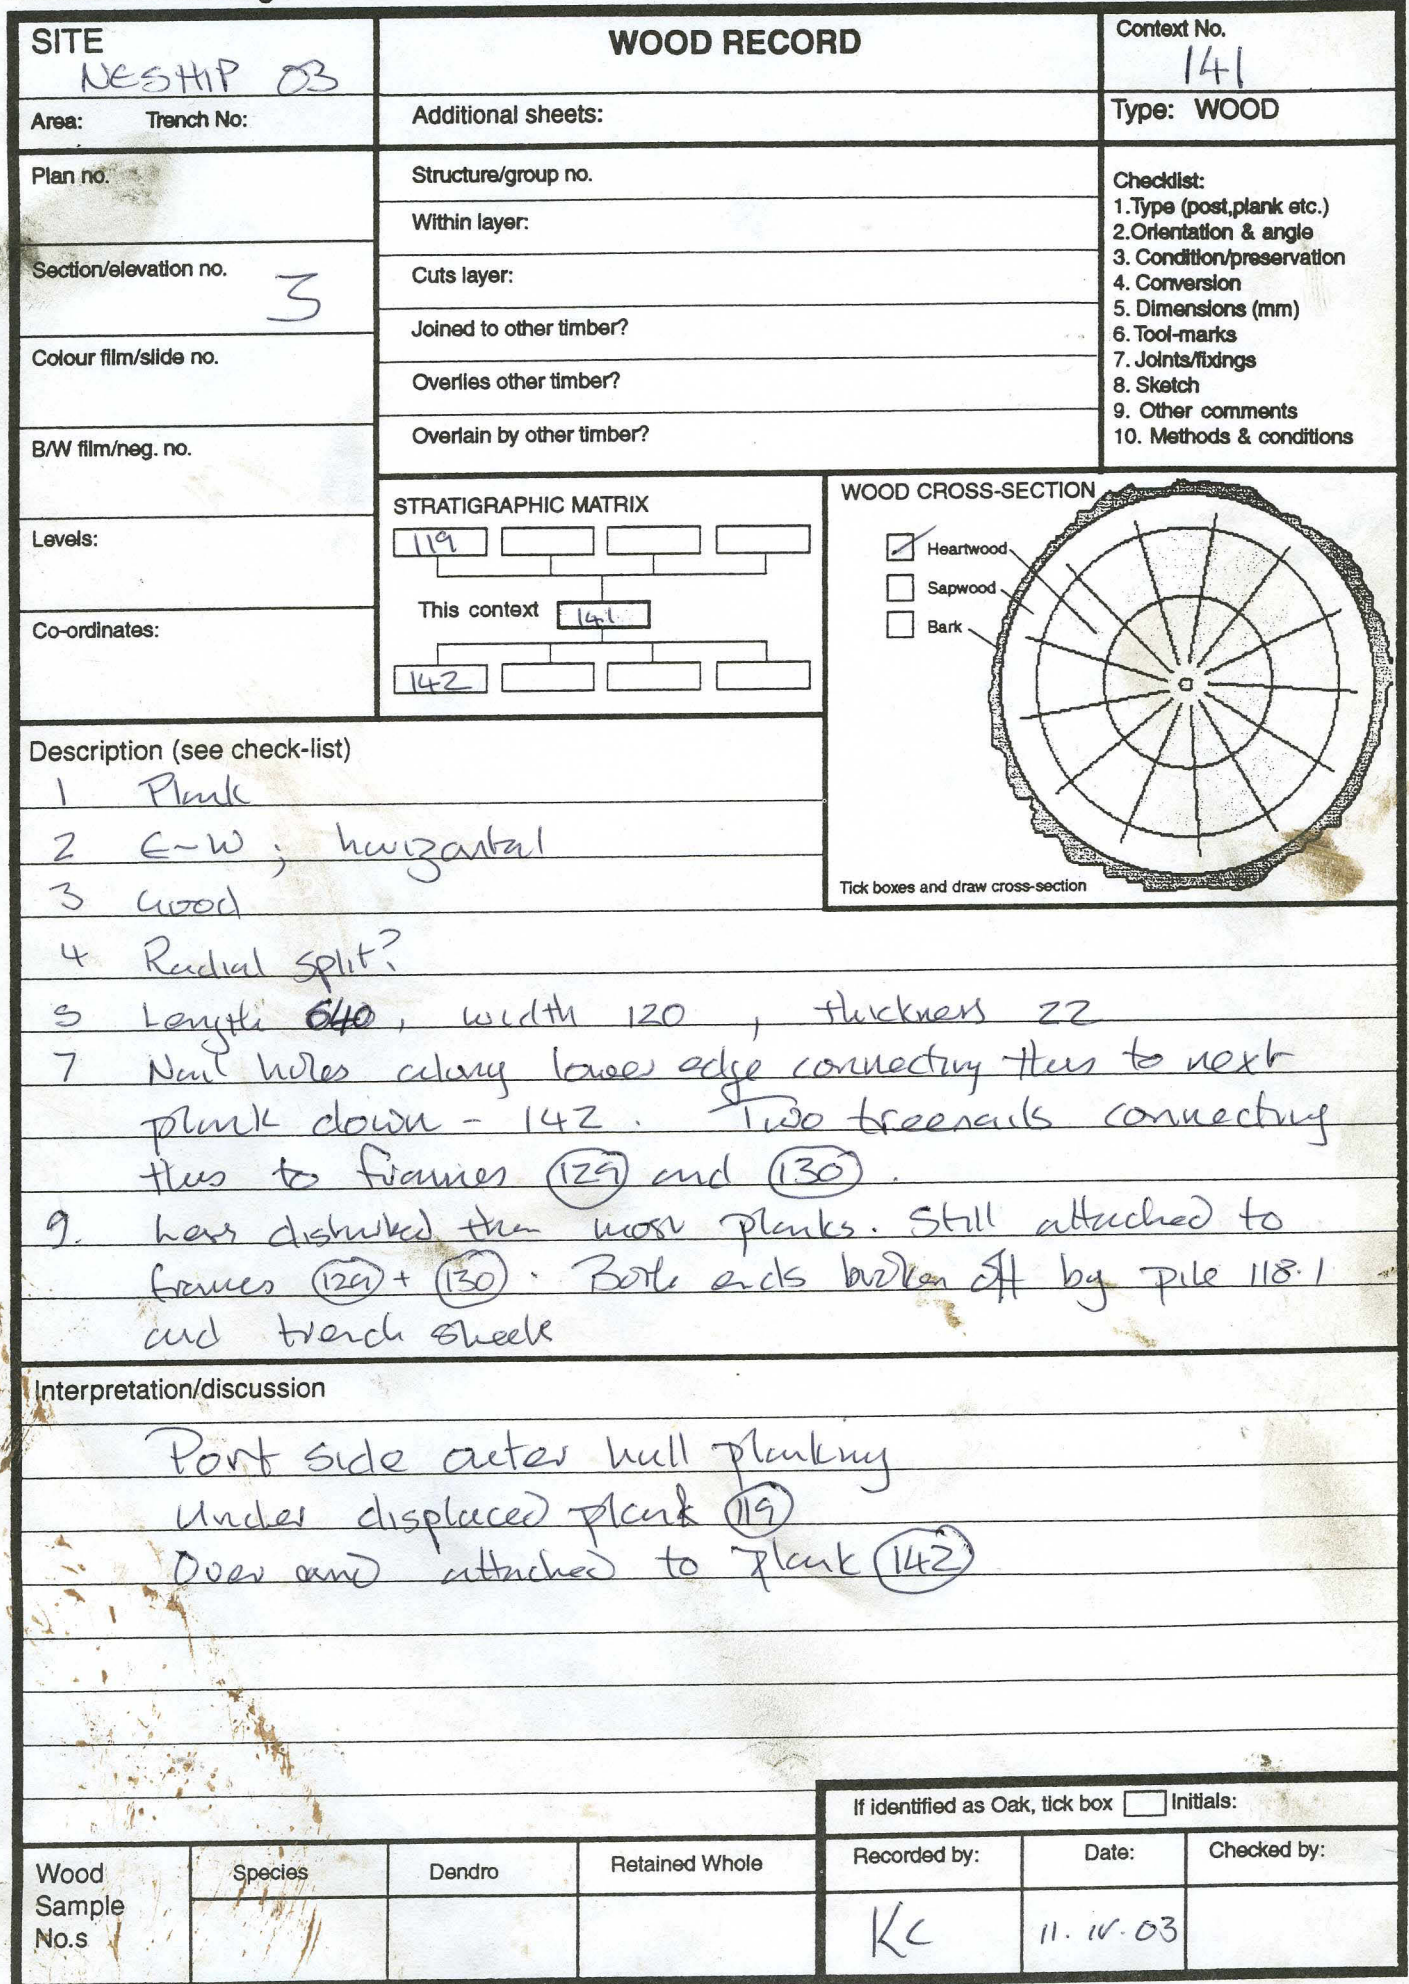 SITE
NESHIP 03
WOOD RECORD
Context No.
141
Area: Trench No:
Additional sheets:
Type: WOOD
Plan no.
Section/elevation no.
3
Colour film/slide no.
B/W film/neg. no.
Levels:
Co-ordinates:
Structure/group no.
Within layer:
Cuts layer:
Joined to other timber?
Overlies other timber?
Overlain by other timber?
Checklist:
1.Type (post,plank etc.)
2.Orientation & angle
3. Condition/preservation
4. Conversion
5. Dimensions (mm)
6. Tool-marks
7. Joints/fixings
8. Sketch
9. Other comments
10. Methods & conditions
STRATIGRAPHIC MATRIX
119
This context 141
142
WOOD CROSS-SECTION
Heartwood
Sapwood
Bark
Tick boxes and draw cross-section
Description (see check-list)
1 Plank
2 E-W ; horizontal
3 Good
4 Radial split?
5 Length 640, width 120, thickness 22
7 Nail holes along lower edge connecting this to next
plank down - 142. Two treenails connecting
this to frames 129 and 130.
9. Less disturbed than most planks. Still attached to
frames 129 + 130. Both ends broken off by pile 118.1
and trench sheet
Interpretation/discussion
Port side outer hull planking
Under displaced plank 119
Over and attached to plank 142
If identified as Oak, tick box Initials:
Wood
Sample
No.s
Species
Dendro
Retained Whole
Recorded by:
KC
Date:
11.IV.03
Checked by: